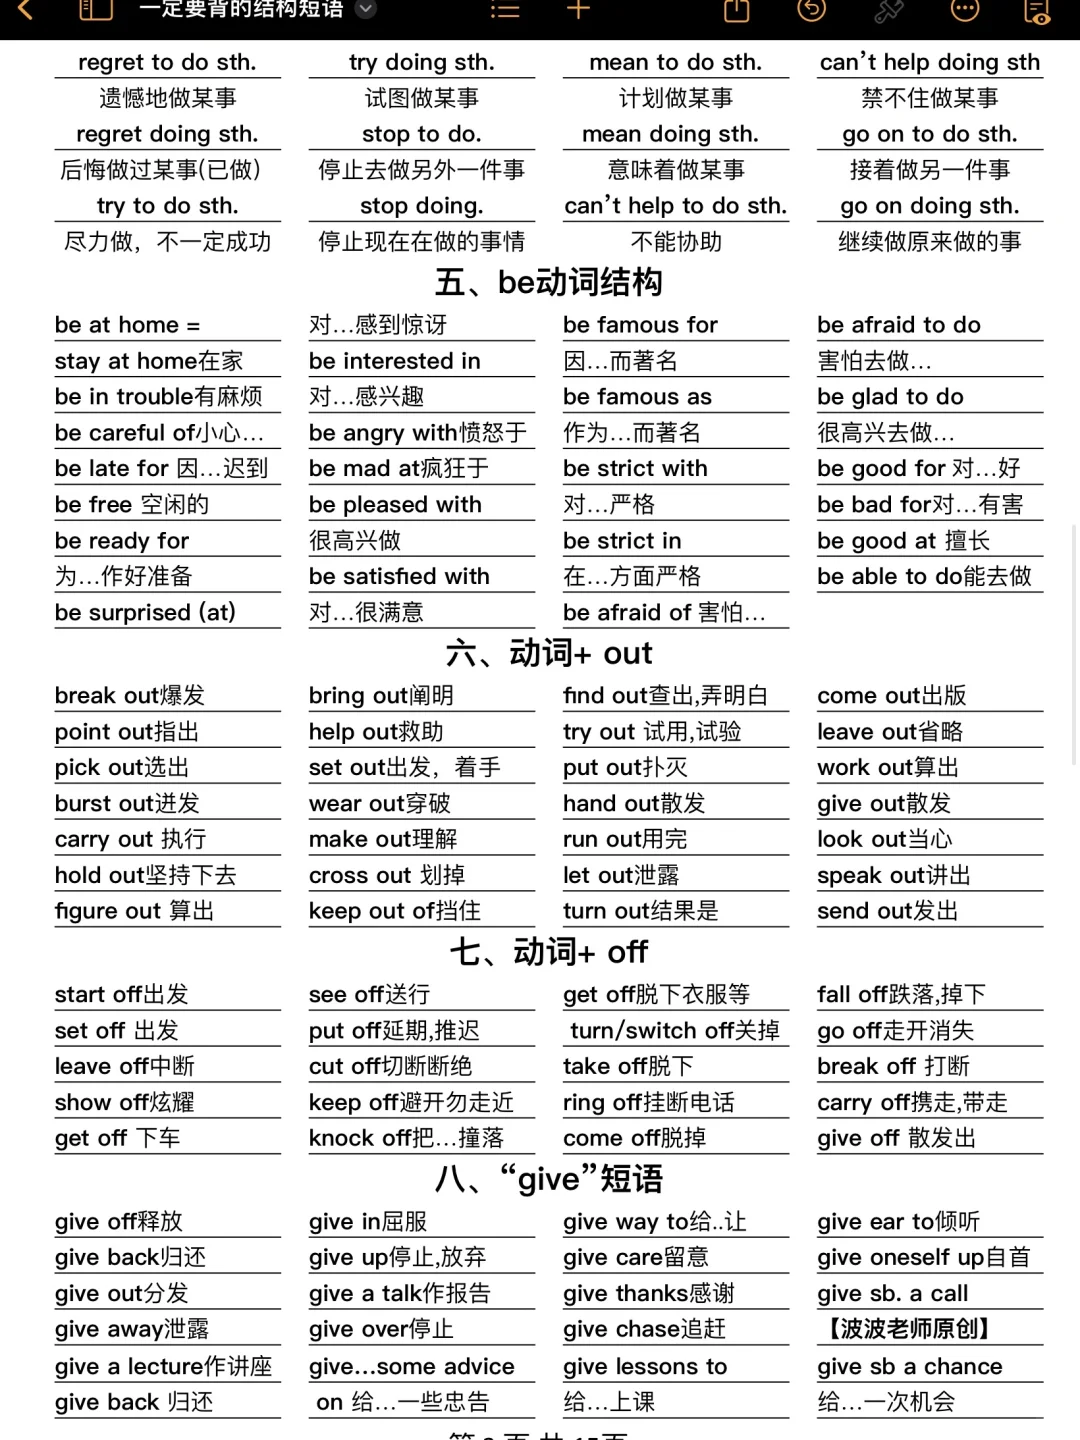 一定要背的结构短语
regret to do sth. try doing sth. mean to do sth. can't help doing sth
遗憾地做某事 试图做某事 计划做某事 禁不住做某事
regret doing sth. stop to do. mean doing sth. go on to do sth.
后悔做过某事(已做) 停止去做另外一件事 意味着做某事 接着做另一件事
try to do sth. stop doing. can't help to do sth. go on doing sth.
尽力做，不一定成功 停止现在在做的事情 不能协助 继续做原来做的事
五、be动词结构
be at home = 对…感到惊讶 be famous for be afraid to do
stay at home在家 be interested in 因…而著名 害怕去做…
be in trouble有麻烦 对…感兴趣 be famous as be glad to do
be careful of小心… be angry with愤怒于 作为…而著名 很高兴去做…
be late for 因…迟到 be mad at疯狂于 be strict with be good for 对…好
be free 空闲的 be pleased with 对…严格 be bad for对…有害
be ready for 很高兴做 be strict in be good at 擅长
为…作好准备 be satisfied with 在…方面严格 be able to do能去做
be surprised (at) 对…很满意 be afraid of 害怕…
六、动词+ out
break out爆发 bring out阐明 find out查出,弄明白 come out出版
point out指出 help out救助 try out 试用,试验 leave out省略
pick out选出 set out出发，着手 put out扑灭 work out算出
burst out迸发 wear out穿破 hand out散发 give out散发
carry out 执行 make out理解 run out用完 look out当心
hold out坚持下去 cross out 划掉 let out泄露 speak out讲出
figure out 算出 keep out of挡住 turn out结果是 send out发出
七、动词+ off
start off出发 see off送行 get off脱下衣服等 fall off跌落,掉下
set off 出发 put off延期,推迟 turn/switch off关掉 go off走开消失
leave off中断 cut off切断断绝 take off脱下 break off 打断
show off炫耀 keep off避开勿走近 ring off挂断电话 carry off携走,带走
get off 下车 knock off把…撞落 come off脱掉 give off 散发出
八、“give”短语
give off释放 give in屈服 give way to给..让 give ear to倾听
give back归还 give up停止,放弃 give care留意 give oneself up自首
give out分发 give a talk作报告 give thanks感谢 give sb. a call
give away泄露 give over停止 give chase追赶 【波波老师原创】
give a lecture作讲座 give…some advice give lessons to give sb a chance
give back 归还 on 给…一些忠告 给…上课 给…一次机会